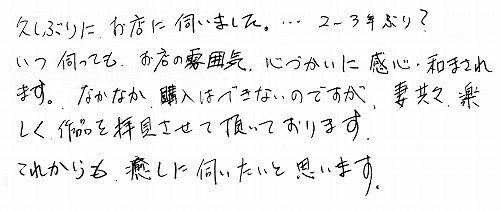 久しぶりに、お店に伺いました。… 2〜3年ぶり?
いつ伺っても、お店の雰囲気、心づかいに感心・和まされ
ます。なかなか購入はできないのですが、妻共々、楽
しく作品を拝見させて頂いております。
これからも、癒しに伺いたいと思います。